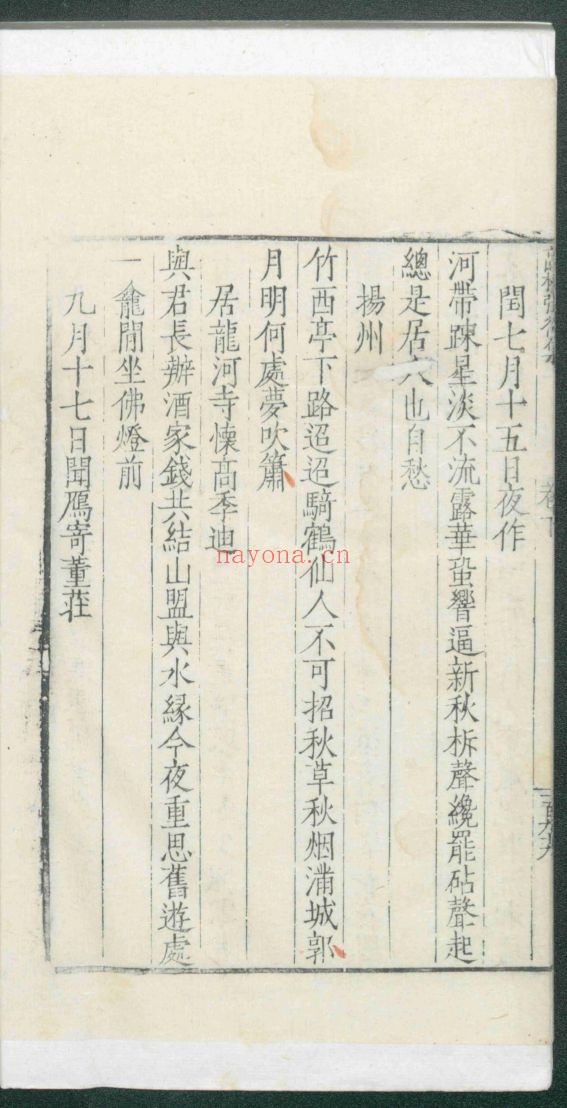 閏七月十五日夜作
河帶疎星淡不流露華蛩響逼新秋柝聲纔罷砧聲起
總是居人也自愁
揚州
竹西亭下路迢迢騎鶴仙人不可招秋草秋烟滿城郭
月明何處夢吹簫
居龍河寺懷高季迪
與君長辦酒家錢共結山盟與水緣今夜重思舊遊處
一龕閒坐佛燈前
九月十七日聞鴈寄董莊
nayona.cn